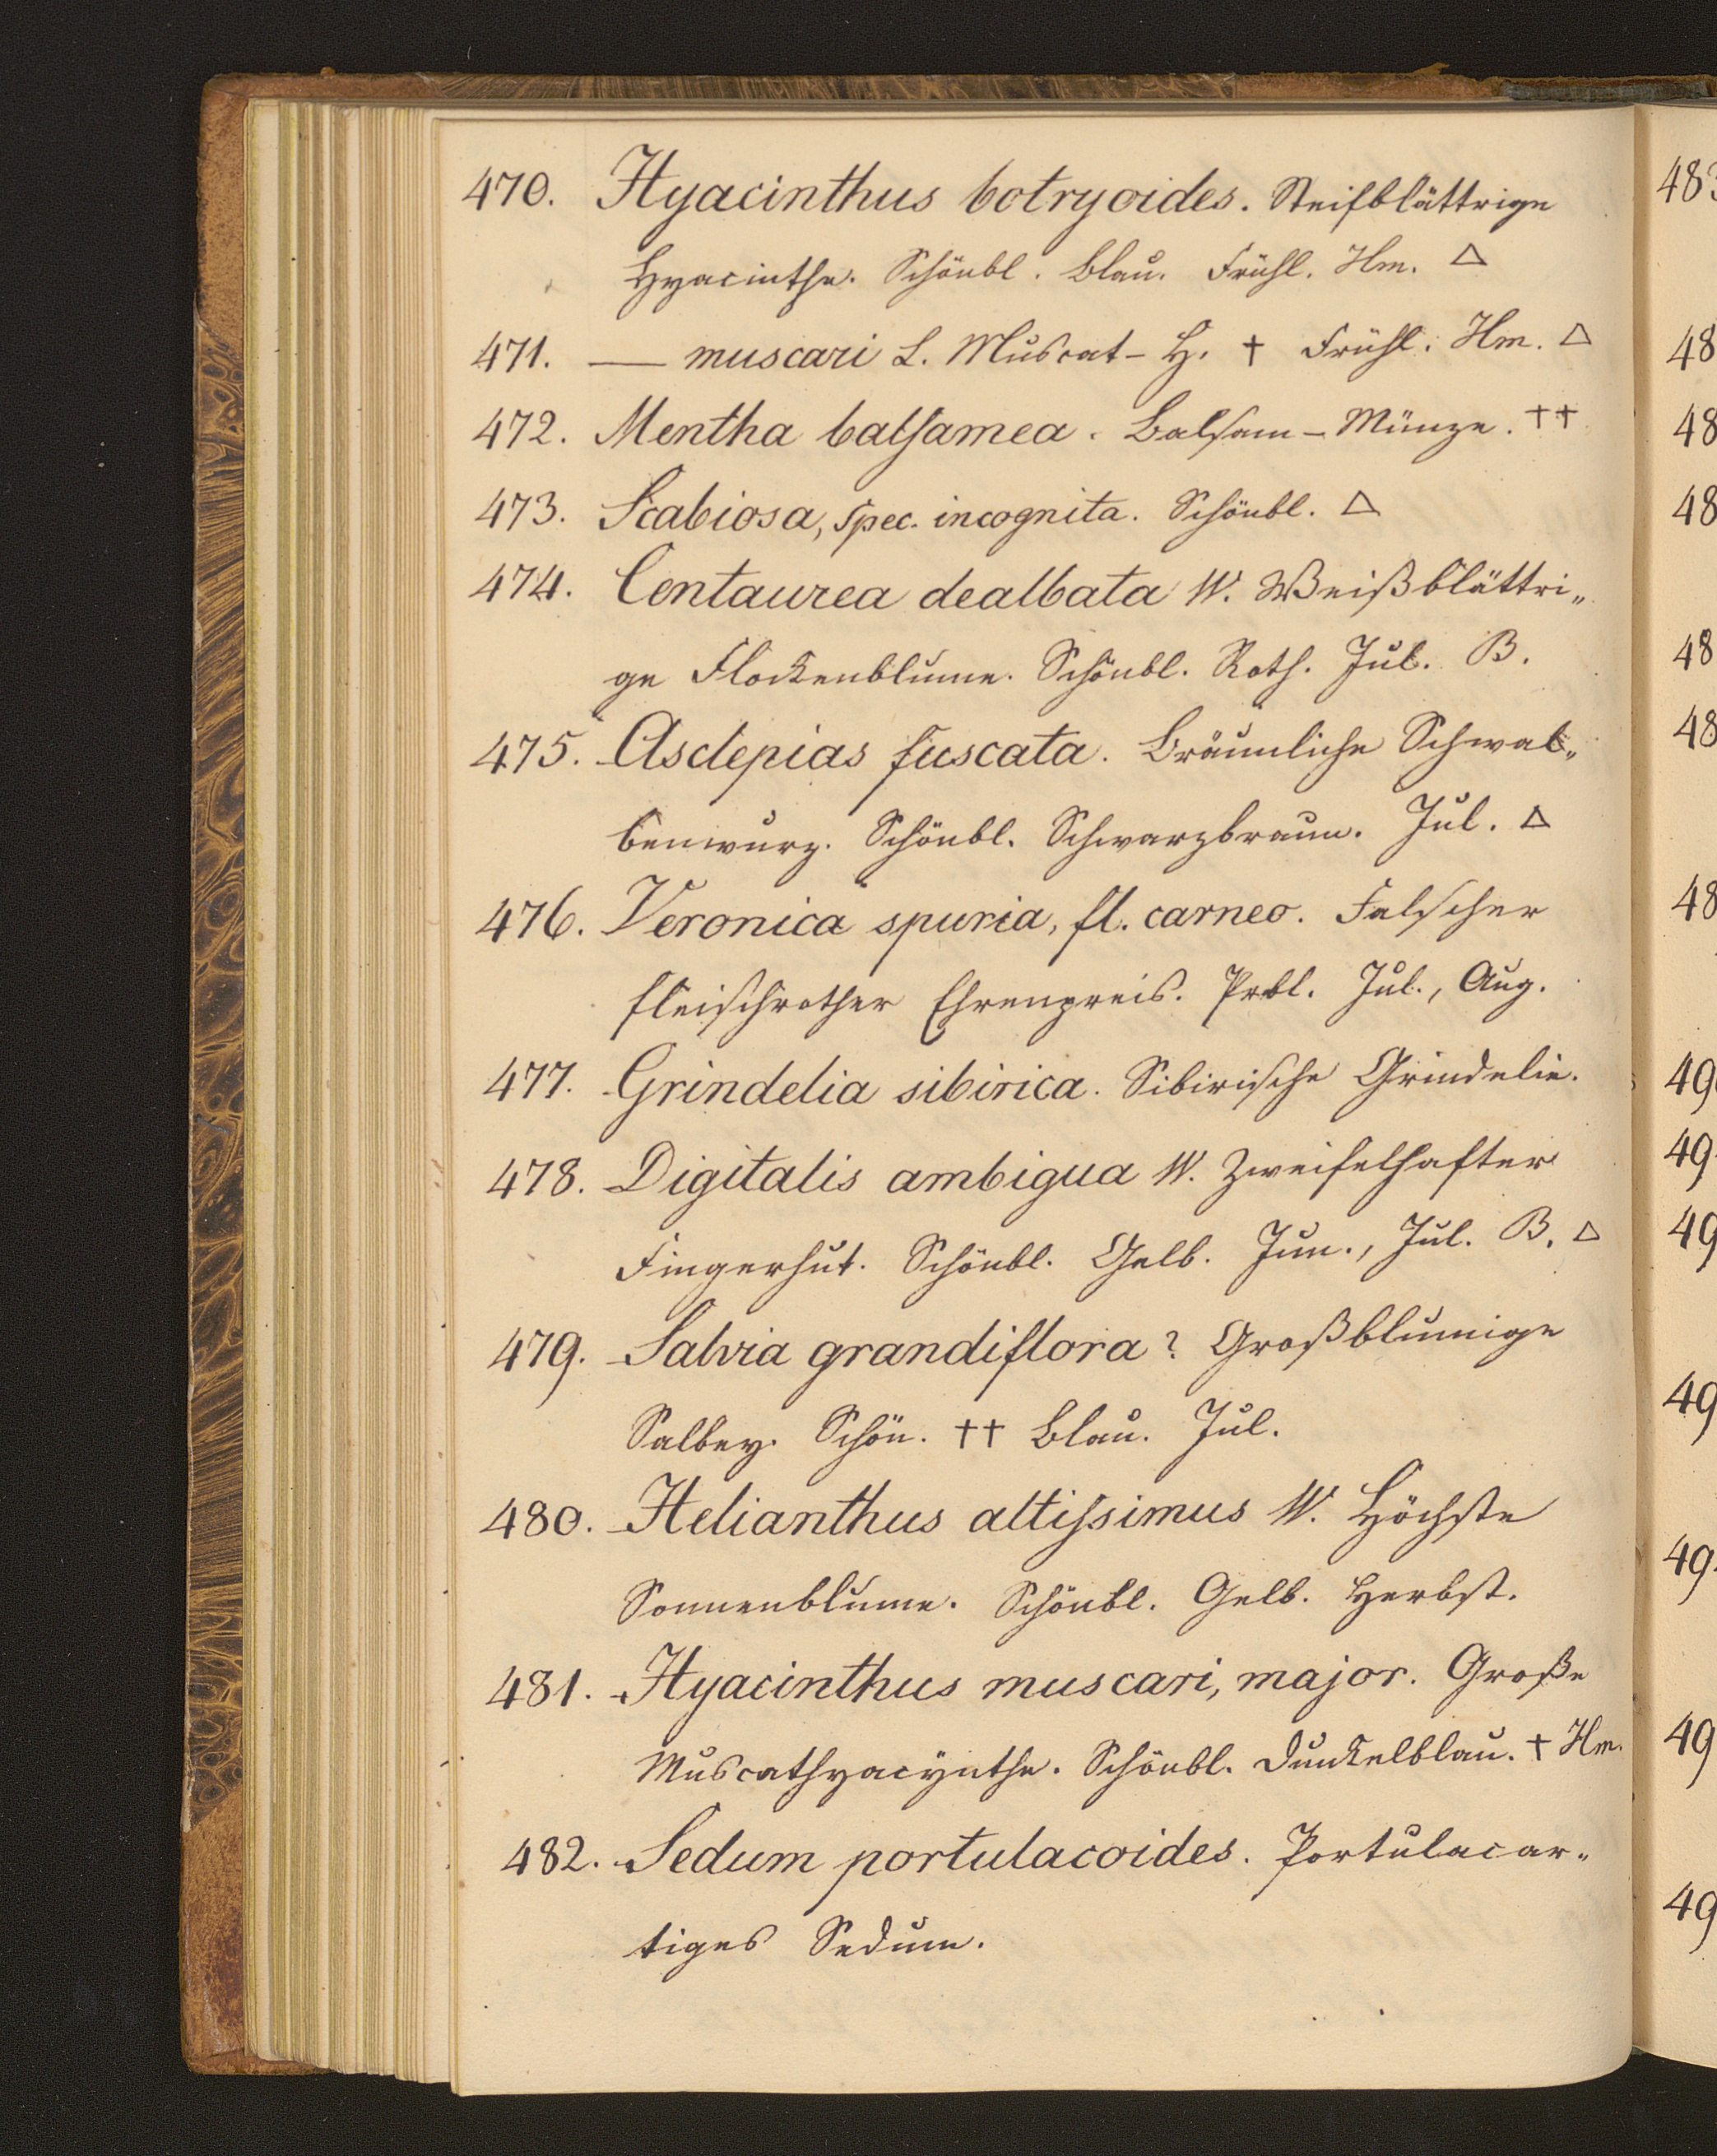 470. Hyacinthus botryoides. Steifblättrige
Hyacinthe. Schönbl. Blau. Frühl. Hm. △
471. — muscari L. Muscat-H. † Frühl. Hm. △
472. Mentha balsamea. Balsam-Münze. ††
473. Scabiosa, spec. incognita. Schönbl. △
474. Centaurea dealbata W. Weißblättri„
ge Flockenblume. Schönbl. Roth. Jul. B.
475. Asclepias fuscata. Bräunliche Schwal„
benwurz. Schönbl. Schwarzbraun. Jul. △
476. Veronica spuria, fl. carneo. Falscher
fleischrother Ehrenpreis. Prbl. Jul., Aug.
477. Grindelia sibirica. Sibirische Grindelie.
478. Digitalis ambigua W. Zweifelhafter
Fingerhut. Schönbl. Gelb. Jun., Jul. B. △
479. Salvia grandiflora? Großblumige
Salbey. Schön. †† Blau. Jul.
480. Helianthus altissimus W. Höchste
Sonnenblume. Schönbl. Gelb. Herbst.
481. Hyacinthus muscari, major. Große
Muscathyacynthe. Schönbl. Dunkelblau. † Hm.
482. Sedum portulacoides. Portulacar„
tiges Sedum.